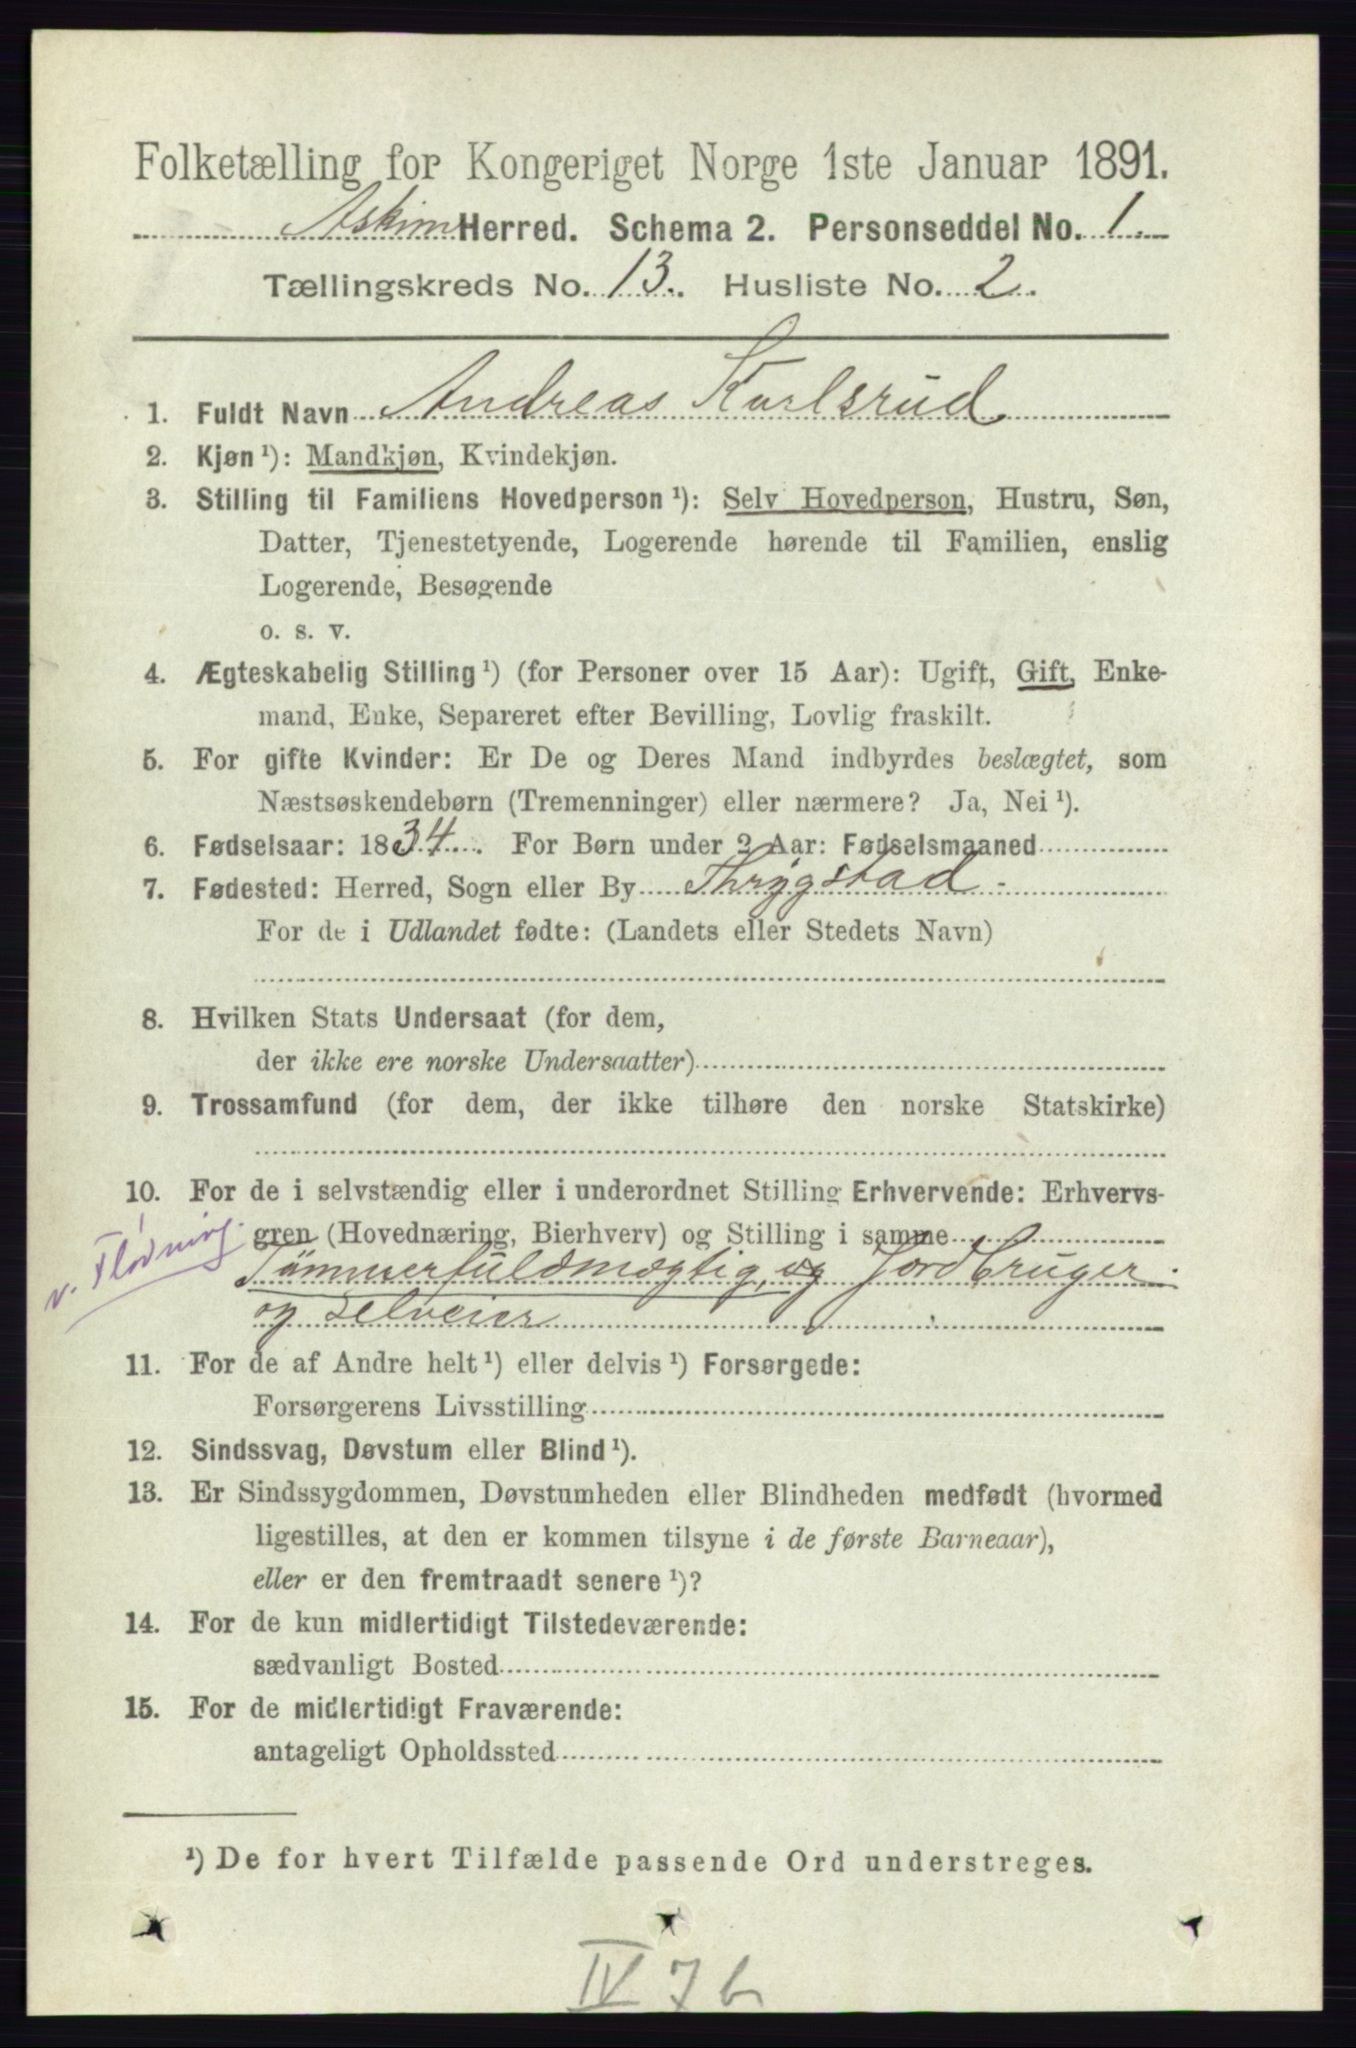 Folketælling for Kongeriget Norge 1ste Januar 1891.
Askim Herred. Schema 2. Personseddel No. 1.
Tællingskreds No. 13. Husliste No. 2.
1. Fuldt Navn Andreas Karlsrud
2. Kjøn ¹): Mandkjøn, Kvindekjøn.
3. Stilling til Familiens Hovedperson ¹): Selv Hovedperson, Hustru, Søn,
Datter, Tjenestetyende, Logerende hørende til Familien, enslig
Logerende, Besøgende
o. s. v.
4. Ægteskabelig Stilling ¹) (for Personer over 15 Aar): Ugift, Gift, Enke-
mand, Enke, Separeret efter Bevilling, Lovlig fraskilt.
5. For gifte Kvinder: Er De og Deres Mand indbyrdes beslægtet, som
Næstsøskendebørn (Tremenninger) eller nærmere? Ja, Nei ¹).
6. Fødselsaar: 1834. For Børn under 2 Aar: Fødselsmaaned
7. Fødested: Herred, Sogn eller By Thrygstad
For de i Udlandet fødte: (Landets eller Stedets Navn)
8. Hvilken Stats Undersaat (for dem,
der ikke ere norske Undersaatter)
9. Trossamfund (for dem, der ikke tilhøre den norske Statskirke)
10. For de i selvstændig eller i underordnet Stilling Erhvervende: Erhvervs-
gren (Hovednæring, Bierhverv) og Stilling i samme
v. Flødning.
Tømmerfuldmægtig, og Jordbruger
og selveier
11. For de af Andre helt ¹) eller delvis ¹) Forsørgede:
Forsørgerens Livsstilling
12. Sindssvag, Døvstum eller Blind ¹).
13. Er Sindssygdommen, Døvstumheden eller Blindheden medfødt (hvormed
ligestilles, at den er kommen tilsyne i de første Barneaar),
eller er den fremtraadt senere ¹)?
14. For de kun midlertidigt Tilstedeværende:
sædvanligt Bosted
15. For de midlertidigt Fraværende:
antageligt Opholdssted
¹) De for hvert Tilfælde passende Ord understreges.
IV 7 b